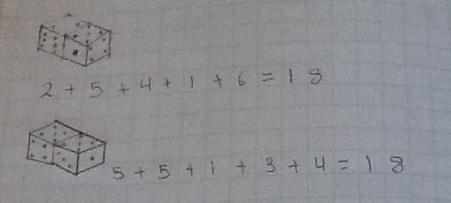 2 + 5 + 4 + 1 + 6 = 18
5 + 5 + 1 + 3 + 4 = 18